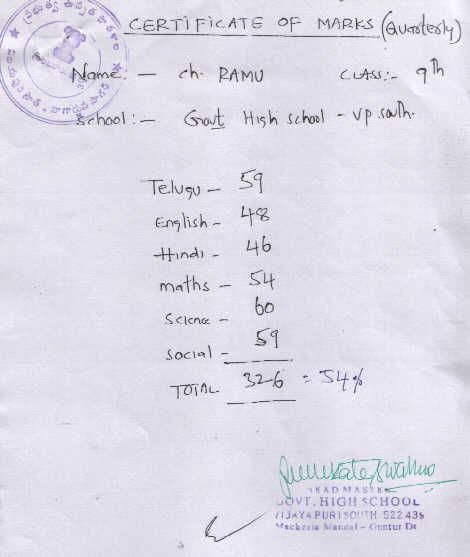 CERTIFICATE OF MARKS (Quarterly)
Name: - ch. RAMU CLASS:- 9th
School:- Govt High school - vp south.
Telugu - 59
English - 48
Hindi - 46
maths - 54
Science - 60
social - 59
TOTAL 326 = 54%
HEAD MASTER
GOVT. HIGH SCHOOL
VIJAYAPURI SOUTH 522 439
Macherla Mandal - Guntur Dt